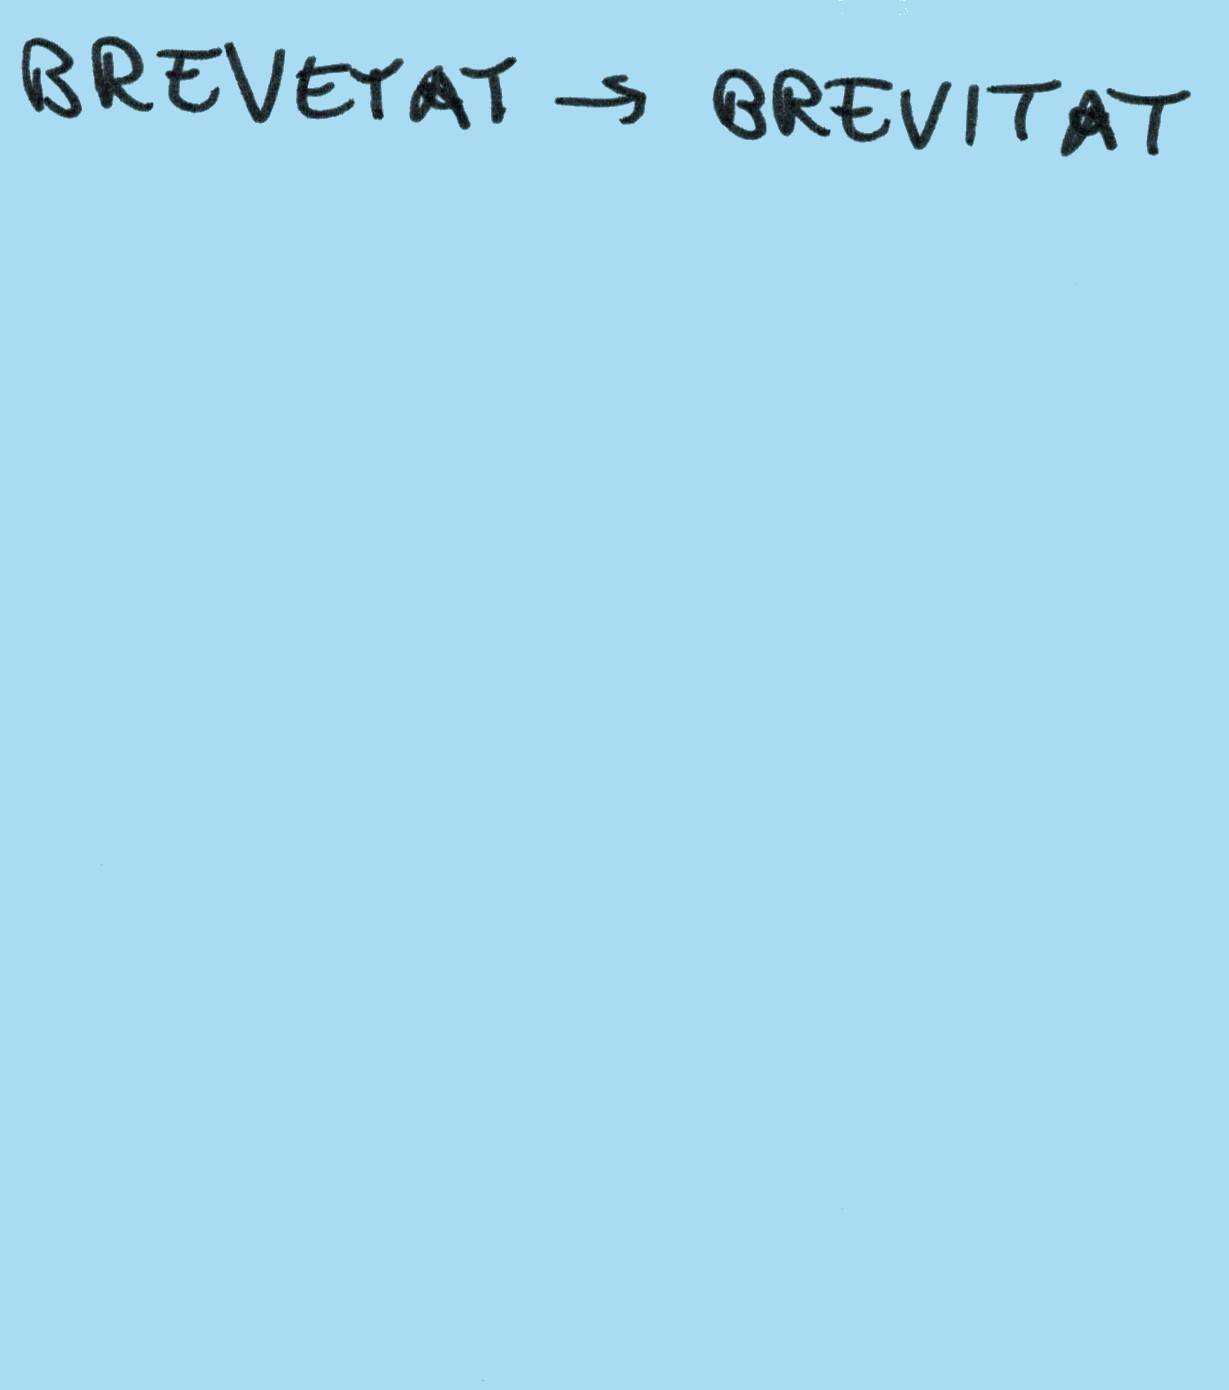 BREVETAT → BREVITAT